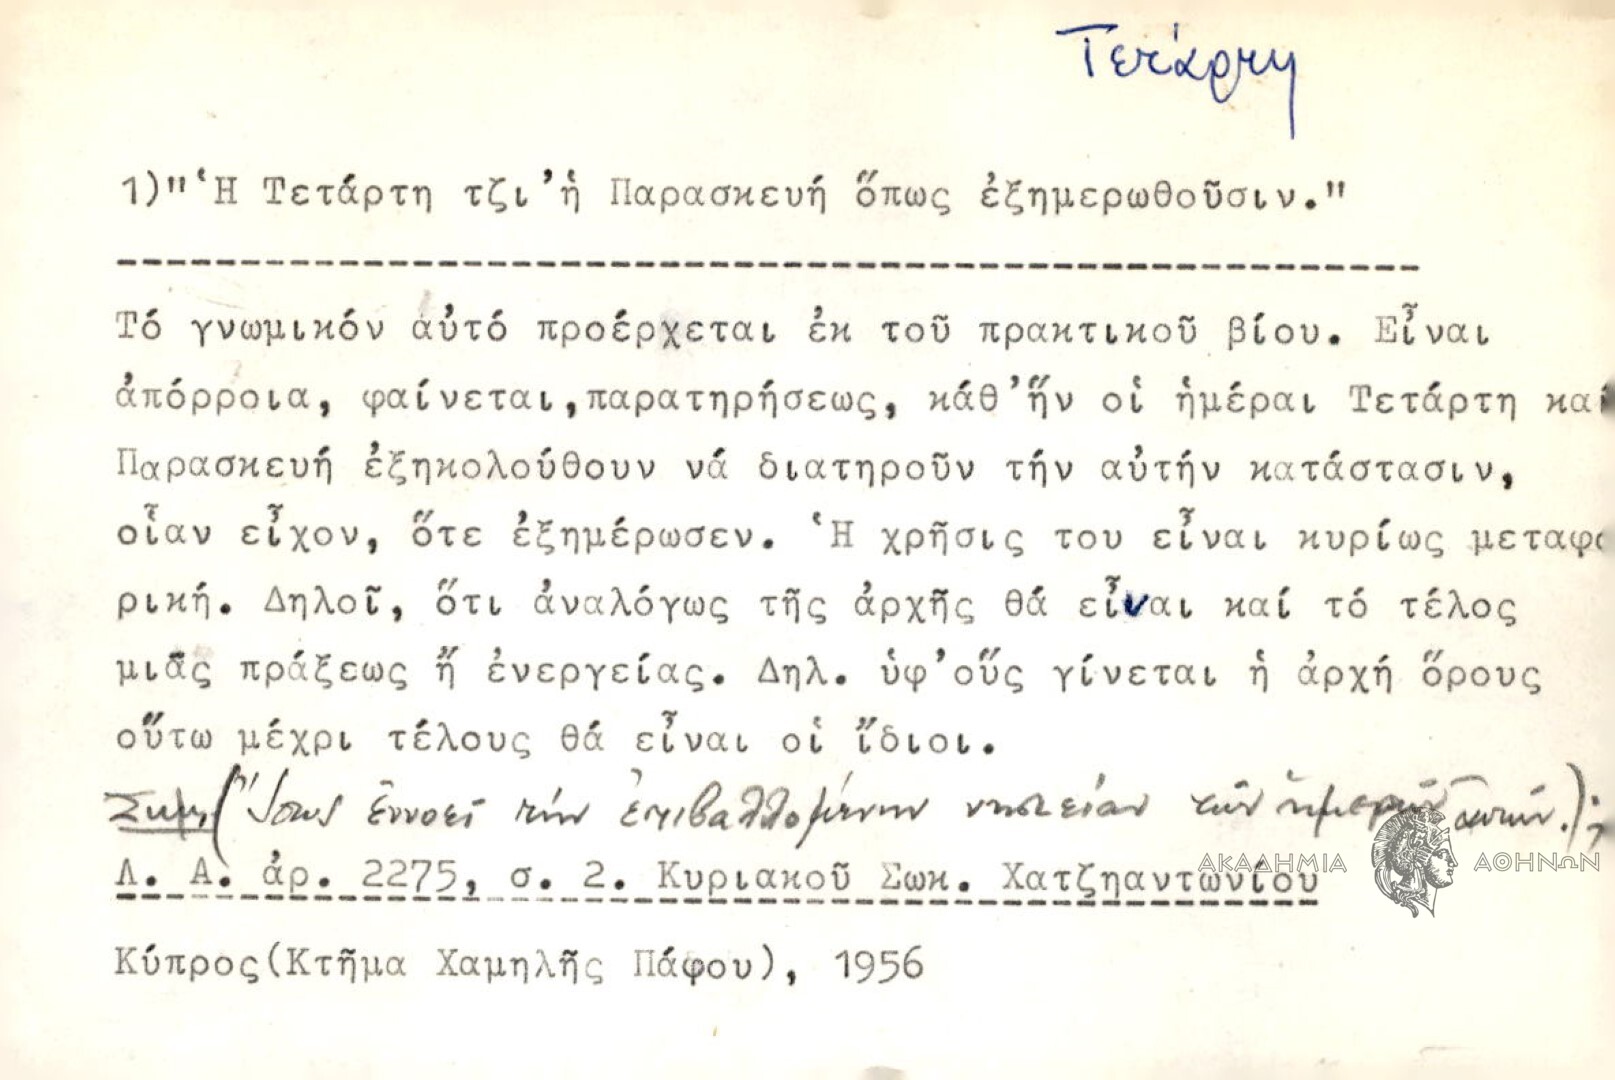 Τετάρτη
1)"Ἡ Τετάρτη τζι'ἡ Παρασκευή ὅπως ἐξημερωθοῦσιν."
Τό γνωμικόν αὐτό προέρχεται ἐκ τοῦ πρακτικοῦ βίου. Εἶναι
ἀπόρροια, φαίνεται,παρατηρήσεως, κάθ'ἥν οἱ ἡμέραι Τετάρτη καί
Παρασκευή ἐξηκολούθουν νά διατηροῦν τήν αὐτήν κατάστασιν,
οἷαν εἶχον, ὅτε ἐξημέρωσεν. Ἡ χρῆσις του εἶναι κυρίως μεταφο
ρική. Δηλοῖ, ὅτι ἀναλόγως τῆς ἀρχῆς θά εἶναι καί τό τέλος
μιᾶς πράξεως ἤ ἐνεργείας. Δηλ. ὑφ'οὕς γίνεται ἡ ἀρχή ὅρους
οὕτω μέχρι τέλους θά εἶναι οἱ ἴδιοι.
Σημ. (Ἴσως ἐννοεῖ τήν ἐπιβαλλομένην νηστείαν τῶν ἡμερῶν αὐτῶν.);
Λ. Α. ἀρ. 2275, σ. 2. Κυριακοῦ Σωκ. Χατζηαντωνίου
ΑΚΑΔΗΜΙΑ ΑΘΗΝΩΝ
Κύπρος(Κτῆμα Χαμηλῆς Πάφου), 1956